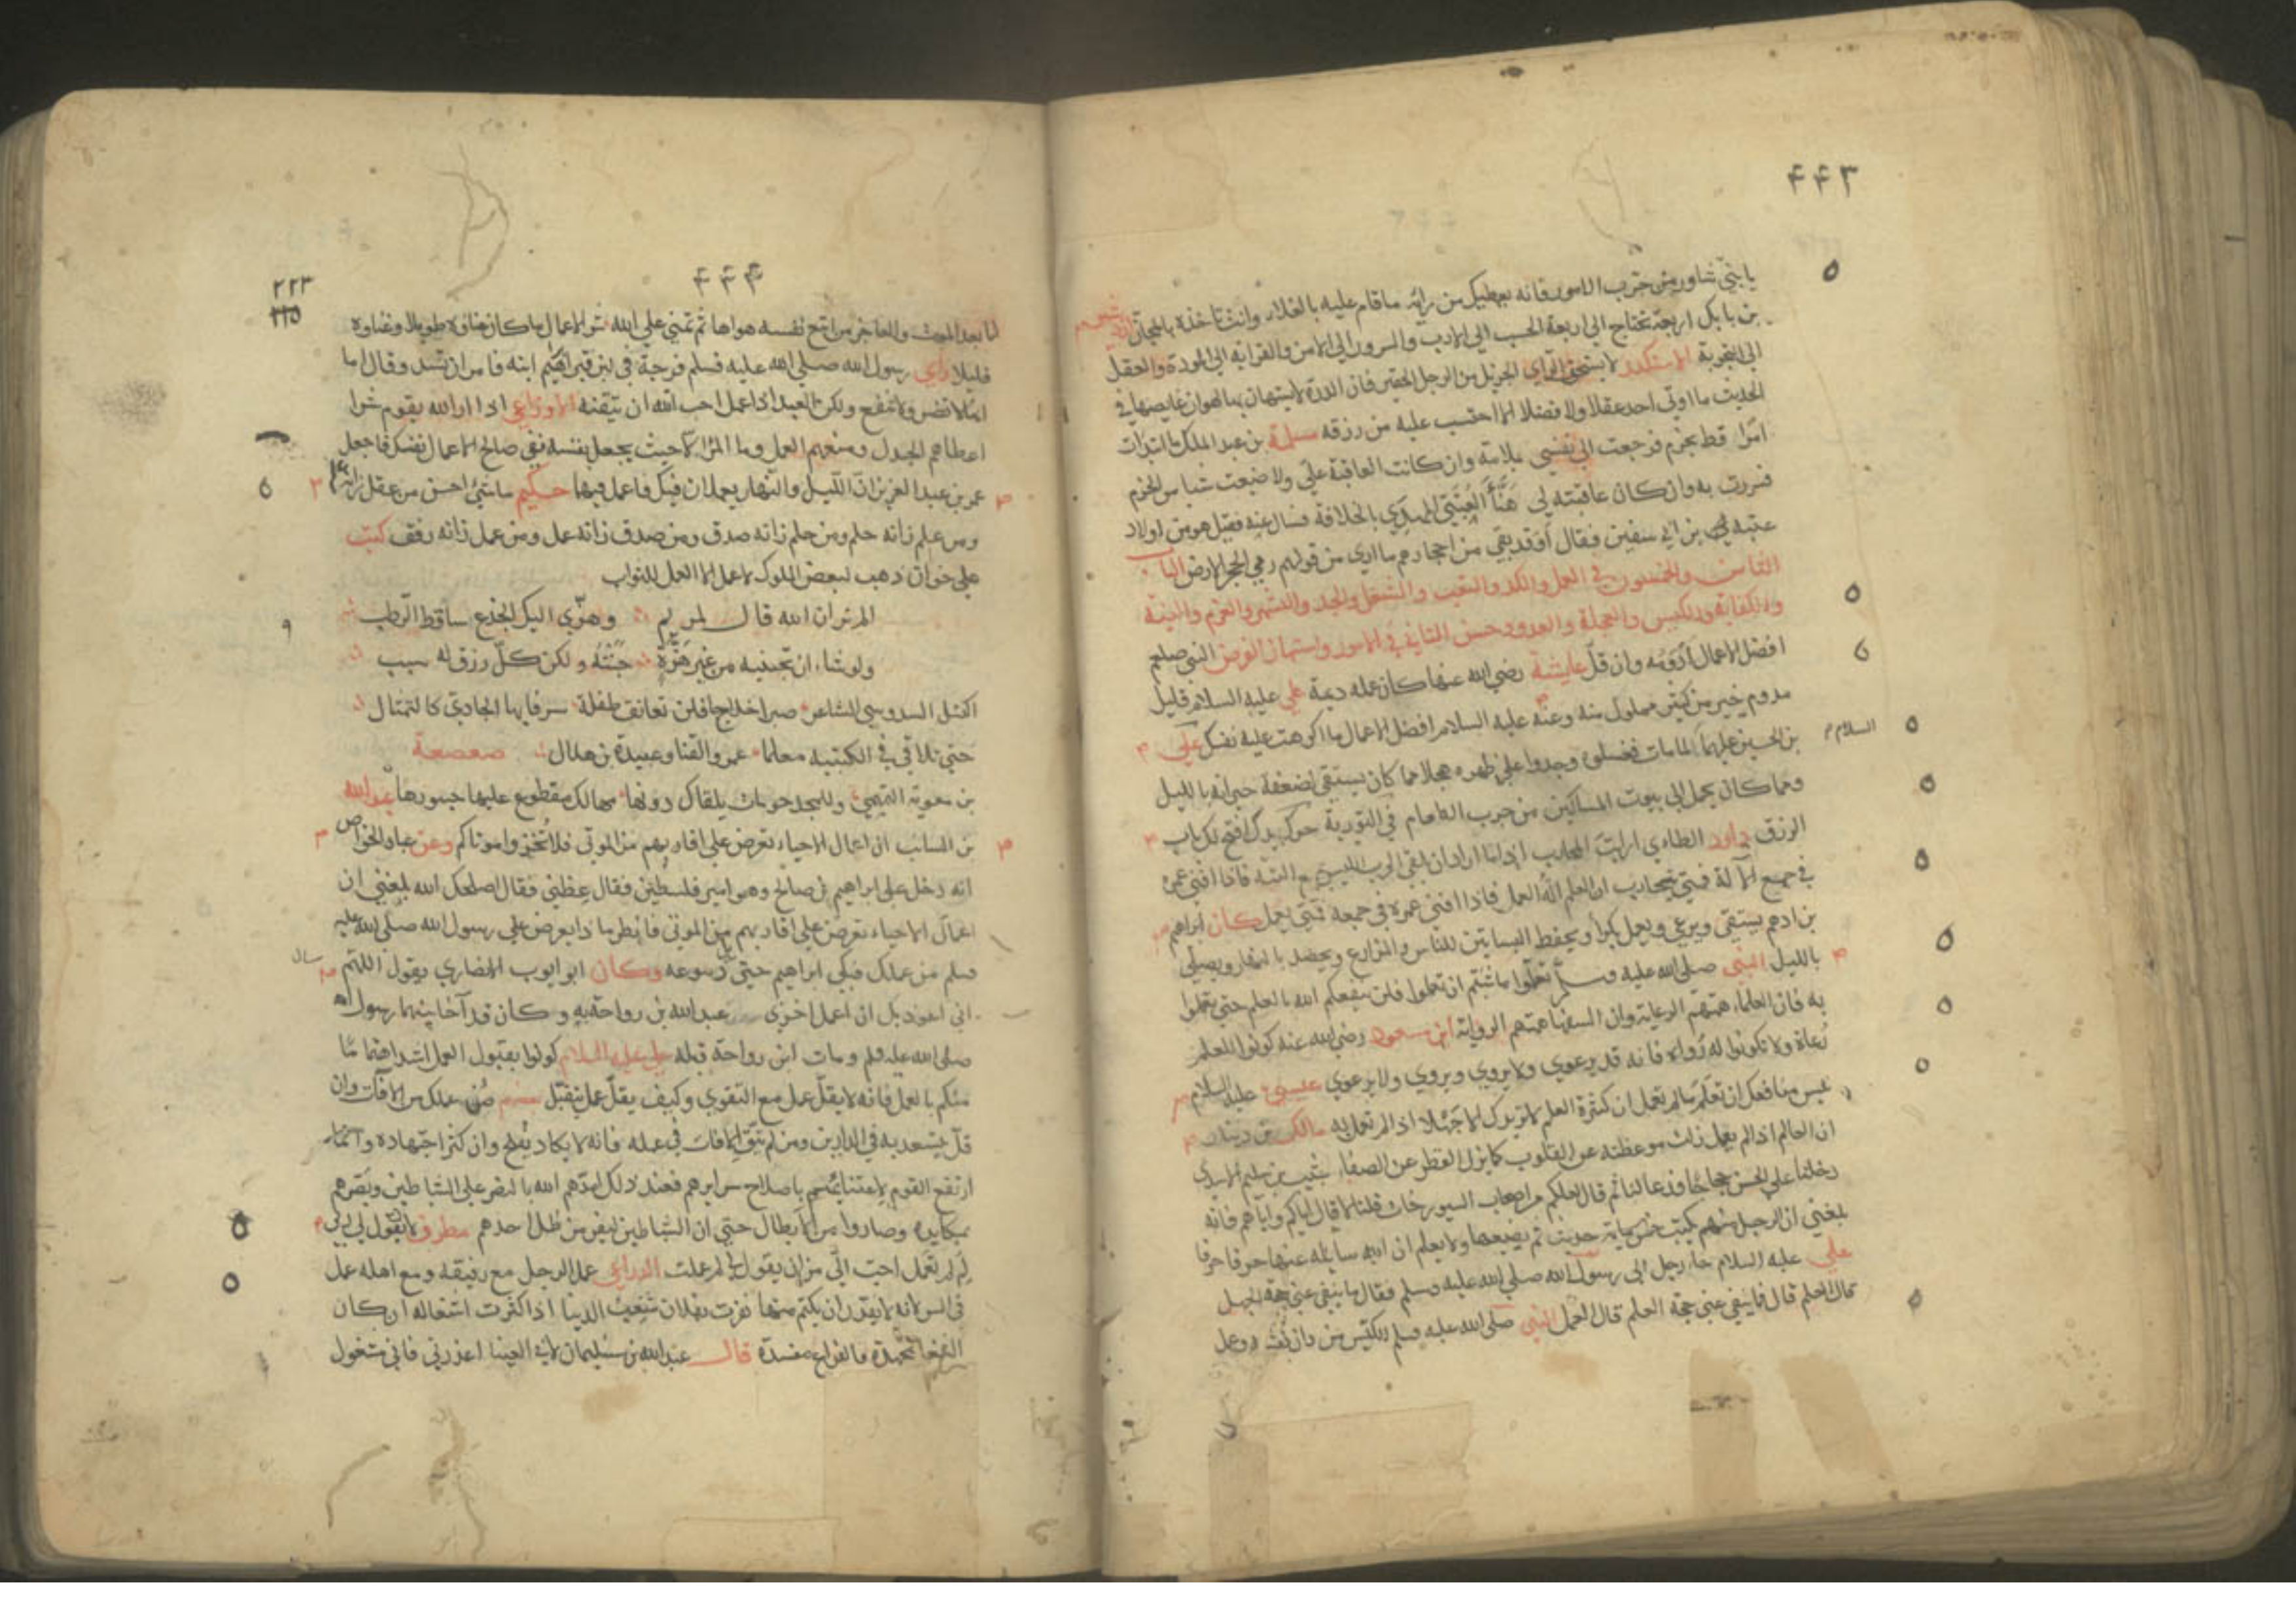 ۴۴۳
يا بنيّ شاور من جرب الامور فانه يعطيك من رأيه ما قام عليه بالغلاء وانت تاخذه بالمجان
بن بابك اربعة تحتاج الى اربعة الحسب الى الادب والسرور الى الامن والقرابة الى المودة والعقل
الى التجربة الاسكندر لا يستحق الراي الجزيل من الرجل الحقير فان الدرة لا يستهان بها لهوان غايصها في
الحديث ما اوتى احد عقلا ولا فضلا الا احتسب عليه من رزقه مسلمة بن عبد الملك ما ابتدات
امرا قط بحزم فرجعت الى نفسي بلامة وان كانت العاقبة علي ولا ضيعت شيا من الحزم
فسررت به وان كان عاقبته لي هنأ العتبي المهدي بالخلافة فسال عنه فقيل هو من اولاد
عتبة بن ابي سفين فقال أوقد بقي من احجارهم ما ارى من قولهم رمي الحجر الارض الباب
الثامن والخمسون في العمل والكد والتعب والشغل والجد والتشمر والعزم والنية
والكفاية والكيس والعجلة والعدو وحسن التاني في الامور واستهاز الفرص النبي صلعم
افضل الاعمال أدومه وان قلّ عايشة رضي الله عنها كان عمله ديمة علي عليه السلام قليل
مدوم خير من كثير مملول منه وعنه عليه السلام افضل الاعمال ما اكرهت عليه نفسك علي
بن الحسين عليهما السلام لما مات فغسلوه وجدوا على ظهره مجلا مما كان يستقي لضعفة جيرانه بالليل
ومما كان يحمل الى بيوت المساكين من جرب الطعام في التورية حرك يدك افتح لك باب
الرزق داود الطاءي ارايت المحارب اذا اراد ان يلقى الحرب اليس يجمع آلته فاذا افنى عمره
في جميع الآلة فمتى يحارب ان العلم آلة العمل فاذا افنى عمره في جمعه فمتى يعمل كان ابراهيم
بن ادهم يستقي ويرعى ويعمل بكرا ويحفظ البساتين للناس والمزارع ويحصد بالنهار ويصلي
بالليل النبي صلى الله عليه وسلم تعلموا ما شئتم ان تعلموا فلن ينفعكم الله بالعلم حتى تعملوا
به فان العلماء همتهم الرعاية وان السفهاء همتهم الرواية ابن مسعود رضي الله عنه كونوا للعلم
رُعاة ولا تكونوا له رُواة فانه قد يرعوي ولا يروي ويروي ولا يرعوي عيسى عليه السلام
ليس منافعك ان تعلم ما لم تعمل ان كثرة العلم لا تزيدك الا جَهْلا اذا لم تعمل به مالك بن دينار
ان العالم اذا لم يعمل زلت موعظته عن القلوب كما يزل القطر عن الصفا شبيب بن سليم الاسدي
دخلنا على الحسن حجاجا فدعا لنا ثم قال لعلكم من اصحاب السبورجات قلنا لا قال اياكم واياهم فانه
بلغني ان الرجل منهم يكتب خمس مايه حديث ثم يضيعها ولا يعلم ان الله سايله عنها حرفا حرفا
علي عليه السلام جاء رجل الى رسول الله صلى الله عليه وسلم فقال ما ينفي عني حجة الجهل
قال العلم قال فما ينفي عني حجة العلم قال العمل النبي صلى الله عليه وسلم الكيّس من دان نفسه وعمل
۴۴۴
۲۲۳
لما بعد الموت والعاجز من اتبع نفسه هواها ثم تمنى على الله شر الاعمال ما كان عناؤه طويلا وغناوه
قليلا راي رسول الله صلى الله عليه وسلم فرجة في لبن قبر ابراهيم ابنه فامر ان تسد وقال اما
انها لا تضر ولا تنفع ولكن العبد اذا عمل احب الله ان يتقنه الاوزاعي اذا اراد الله بقوم شرا
اعطاهم الجدل ومنعهم العمل وما المرء الا حيث يجعل نفسه ففي صالح الاعمال نفسك فاجعل
عمر بن عبد العزيز ان الليل والنهار يعملان فيك فاعمل فيهما حكيم ما شيء احسن من عقل زانه علم
ومن علم زانه حلم ومن حلم زانه صدق ومن صدق زانه عمل ومن عمل زانه رفق كتب
على خوان ذهب لبعض الملوك لا عمل الا العمل للثواب
الم تر ان الله قال لمريم وهزّي اليك الجذع ساقط الرطب
ولو شاء ان تجنيه من غير هَزّة جَنَتْهُ ولكن كلّ رزق له سبب
السدوسي الشاعر صبرا خداج فلن تعانق طفلة سرفا بها الجادي كالتمثال
حتى تلاقي في الكتيبه معلما عمرو القنا وعبيدة بن هلال صعصعة
بن معوية التميمي وللمجد حومات يلقاك دونها مهالك مقطوع عليها جسورها عبد الله
بن السائب ان اعمال الاحياء تعرض على اقاربهم من الموتى فلا تُخزوا موتاكم وعن عباد الخواص
انه دخل على ابراهيم بن صالح وهو امير فلسطين فقال عظني فقال اصلحك الله بلغني ان
اعمال الاحياء تعرض على اقاربهم من الموتى فانظر ما ذا يعرض على رسول الله صلى الله عليه
وسلم من عملك فبكي ابراهيم حتى سال دموعه وكان ابو ايوب الانصاري يقول اللهم
اني اعوذ بك ان اعمل اخزى عبد الله بن رواحة به وكان قد آخا بينهما رسول الله
صلى الله عليه وسلم ومات ابن رواحة قبله علي عليه السلام كونوا بقبول العمل اشد اهتماما
منكم بالعمل فانه لا يقلّ عمل مع التقوى وكيف يقلّ عمل يتقبّل صُن عملك من الآفات وان
قلّ يسعد به في الدارين ومن لم يتق الآفات في عمله فانه لا يكاد يفلح وان كثر اجتهاده وانما
ارتفع القوم لاعتنائهم باصلاح سرايرهم فعند ذلك امدّهم الله بالنصر على الشياطين وبَصّرهم
بمكايده وصاروا من الابطال حتى ان الشياطين ليفر من ظل احدهم مطرف لان يقول لي ربي
لِمَ لم تعمل احب الّي من ان يقول لم عملت الداراي عمل الرجل مع رفيقه ومع اهله عمل
في السر لانه لا يقدر ان يكتم منها فزت بفلان شعيث الدينا اذا كثرت اشغاله ان كان
الشغل مجهدة فالفراغ مفسدة قال عبد الله بن سليمان لابي العينا اعذرني فاني مشغول